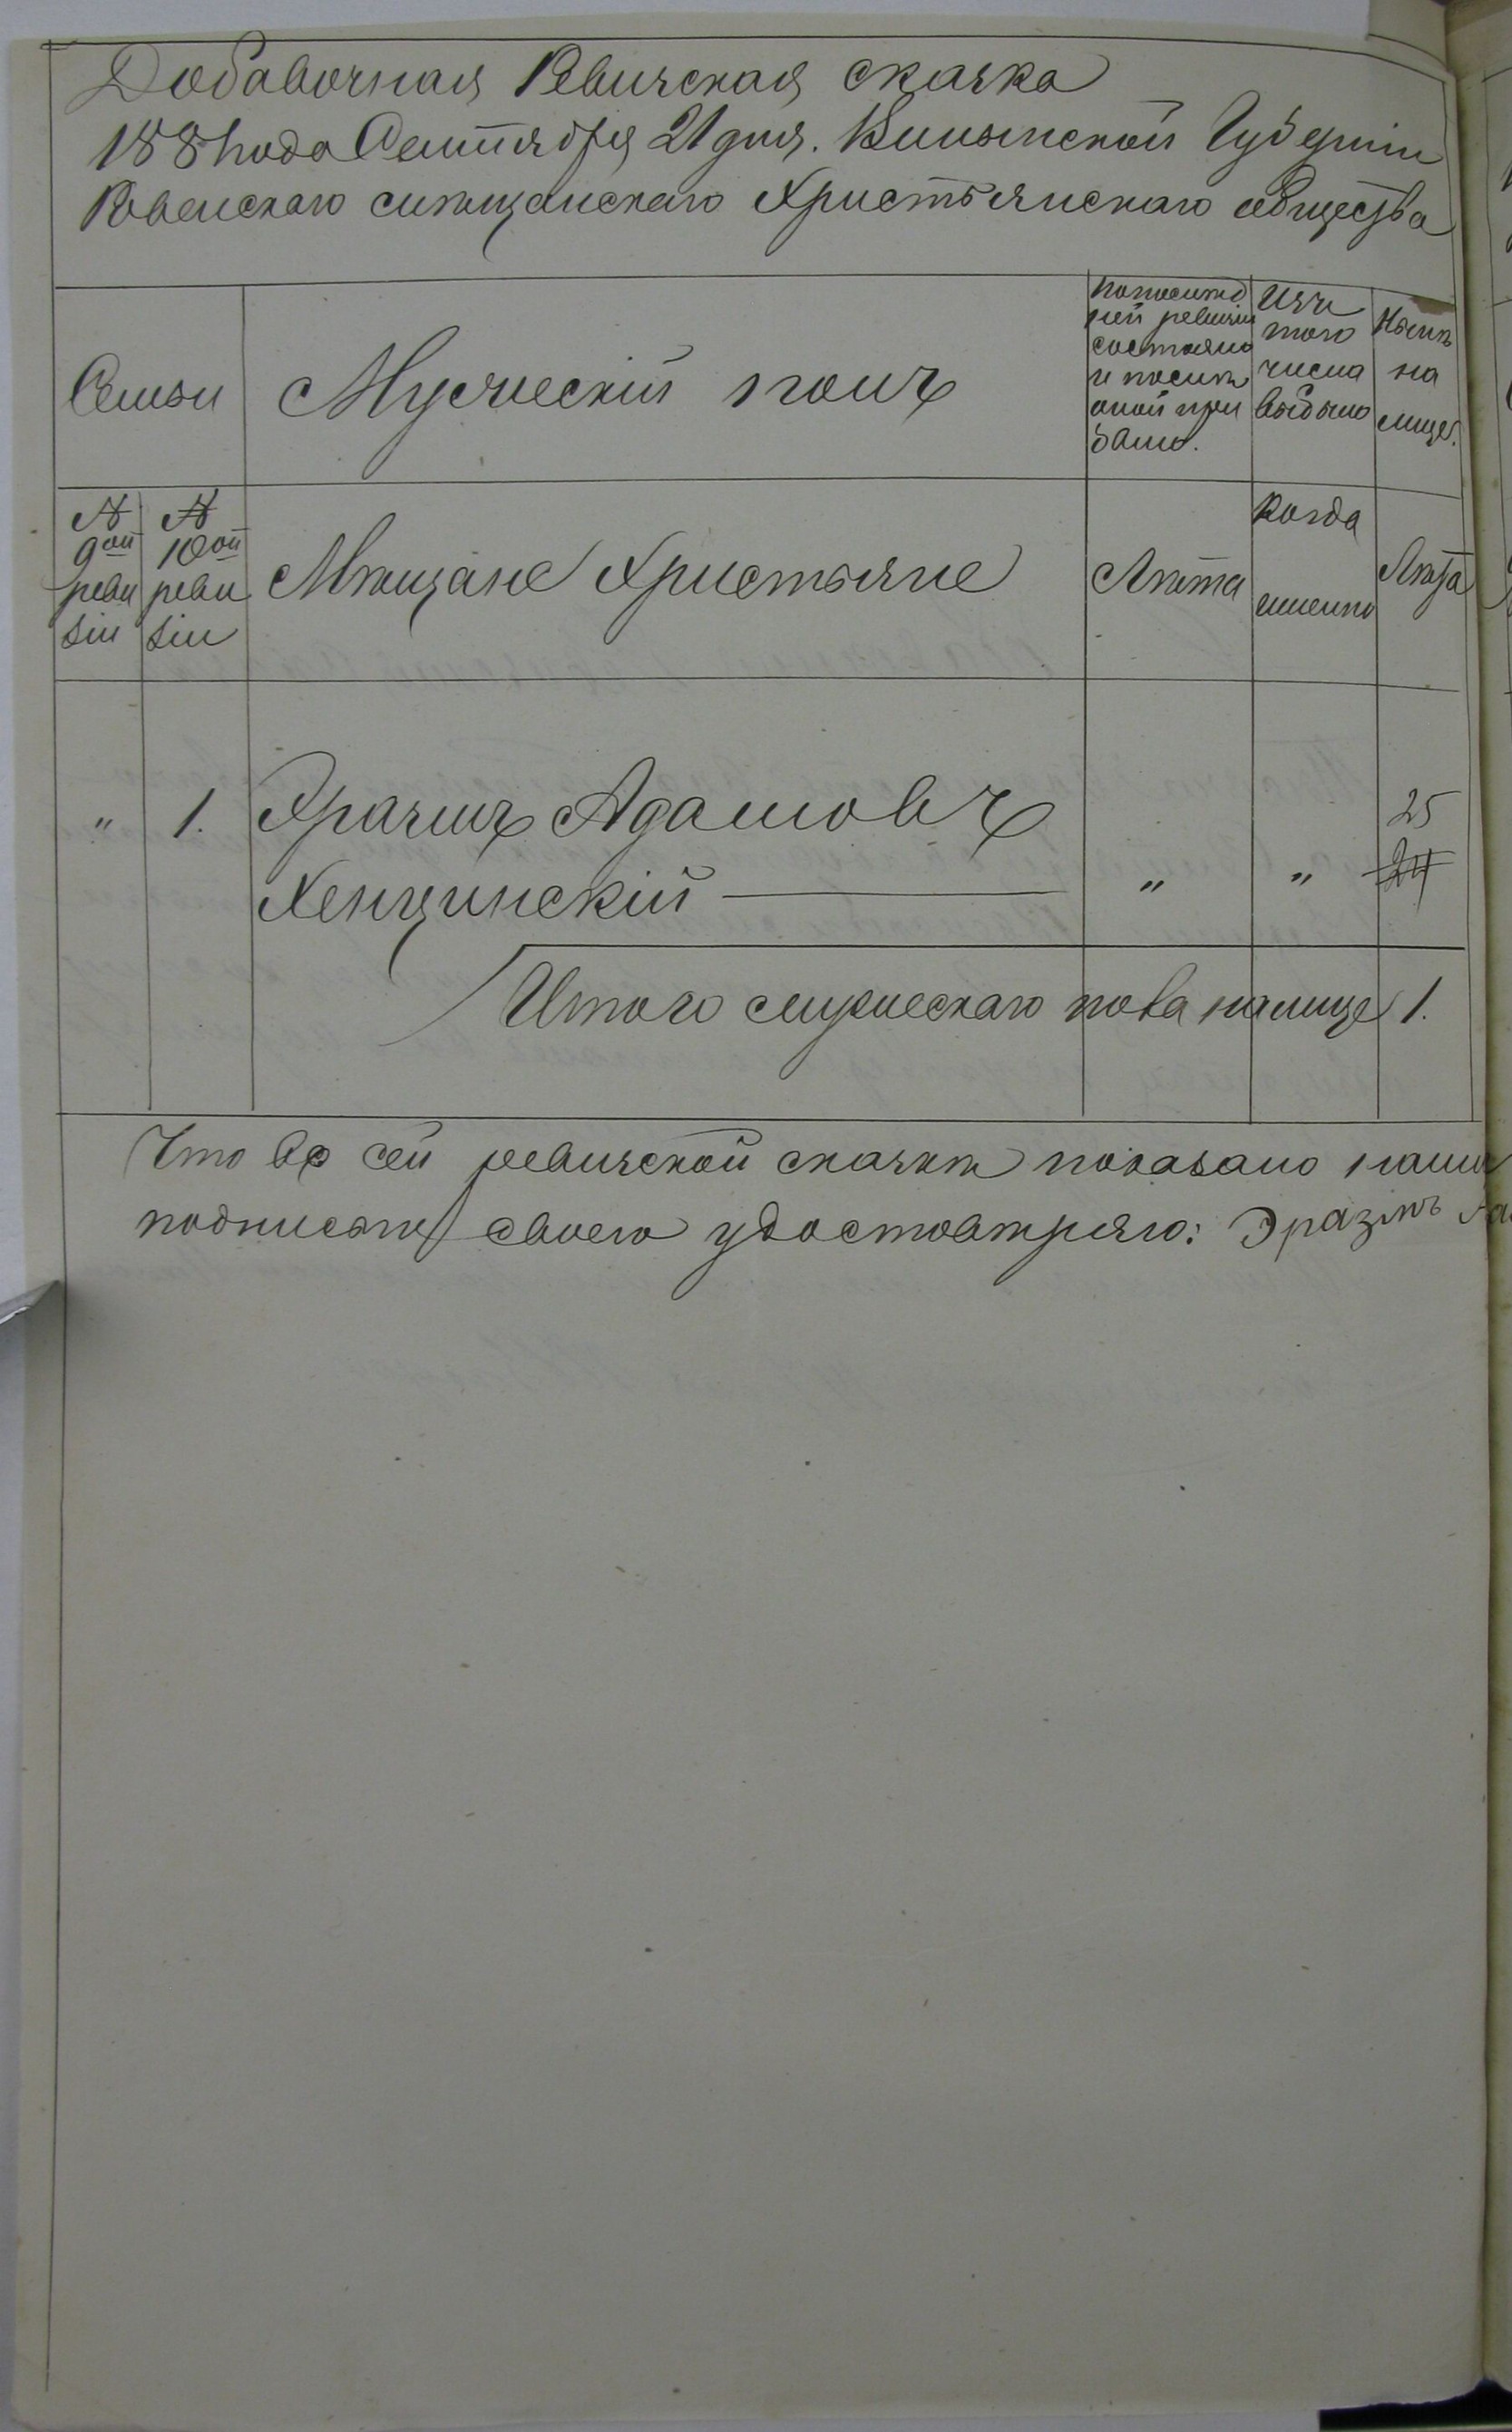 Добавочная Ревизская сказка
1881 года Сентября 21 дня. Виленской Губерніи
Ковенскаго мѣщанскаго Христьянскаго общества
Семьи
Мужескій полъ
По послѣд
ней ревизіи
состояло
и послѣ
оной при
было.
Изъ
того
числа
выбыло
Нынѣ
на
лице.
№
9ой
реви
зіи
№
10ой
реви
зіи
Мѣщане Христьяне
Лѣта
Когда
именно
Лѣта
" 1. Эразмъ Адамовъ 25
Хенцинскій — " " 24
Итого мужескаго пола на лице 1.
Что въ сей ревизской сказкѣ показано
подписью своею удостовѣряю: Эразмъ